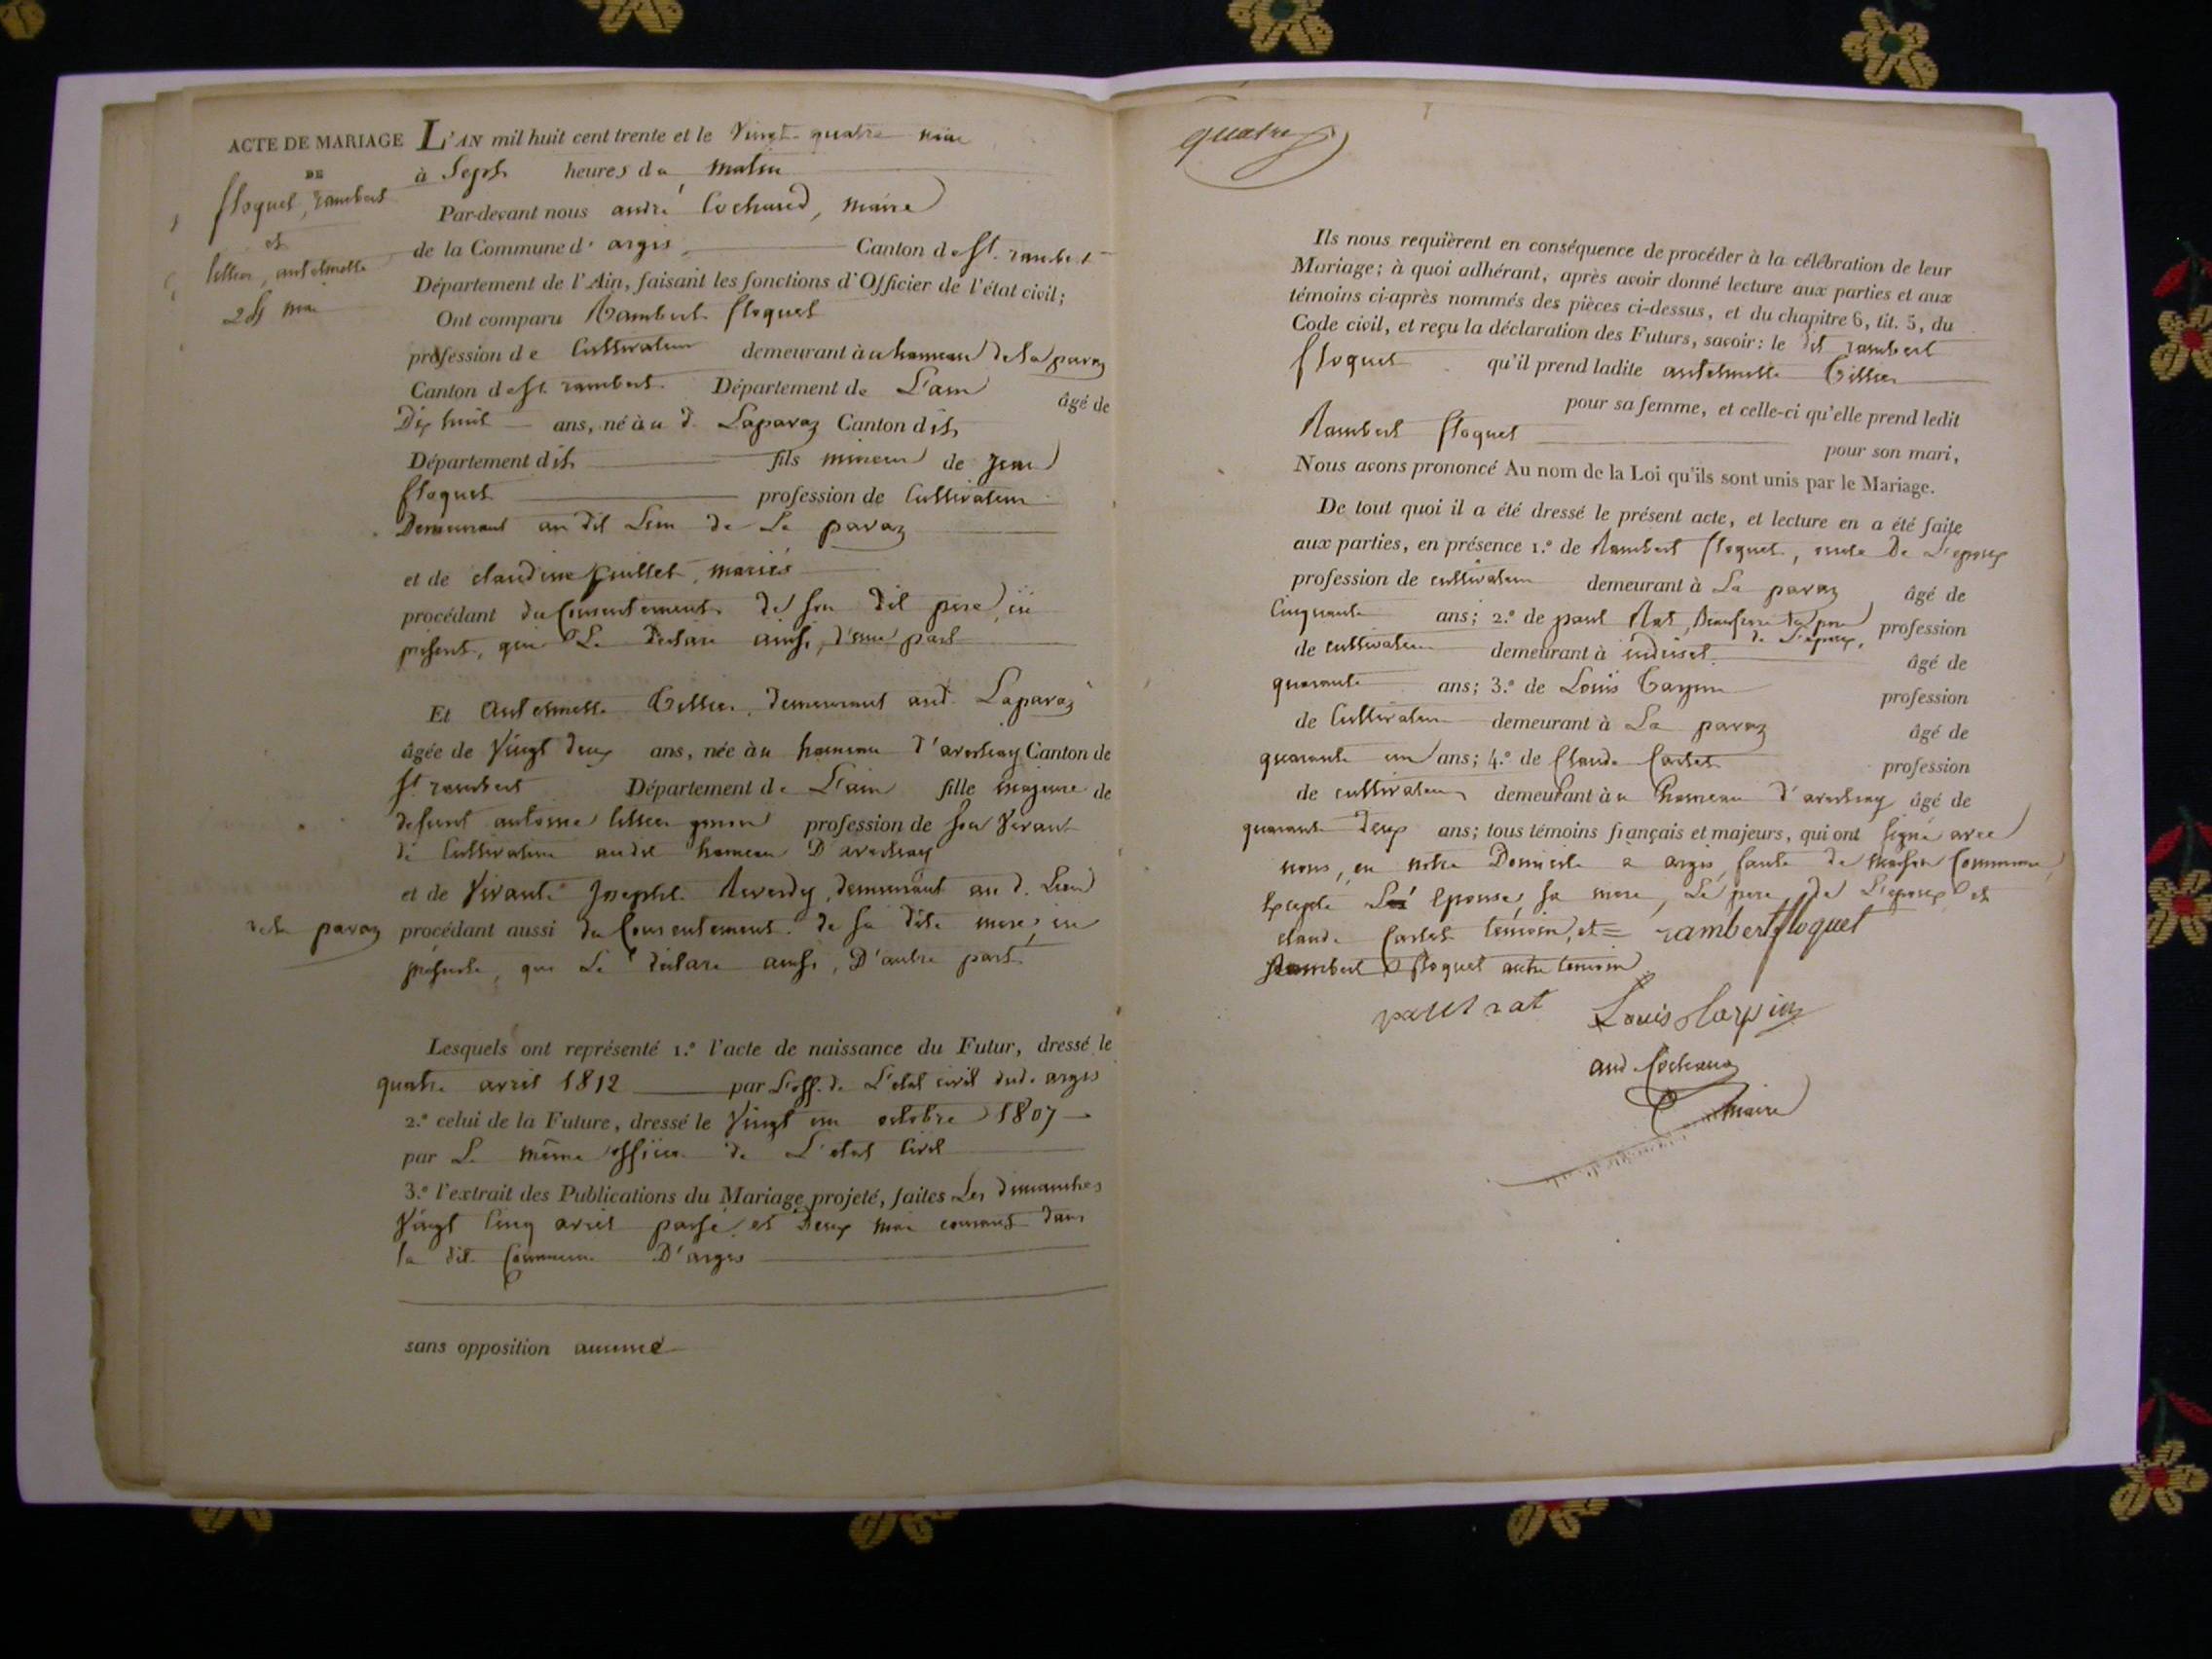 ACTE DE MARIAGE
DE
floquet, rambert
et
tillier, antelmette
24 mai
L'AN mil huit cent trente et le Vingt-quatre mai
à Sept heures du matin
Par-devant nous andré Cochaud, maire
de la Commune d' argis Canton de St. rambert
Département de l'Ain, faisant les fonctions d'Officier de l'état civil;
Ont comparu Rambert floquet
profession de Cultivateur demeurant à u hameau de la paraz
Canton de St. rambert Département de L'ain âgé de
Dix huit ans, né à u d. Laparaz Canton dit
Département dit fils mineur de Jean
floquet profession de Cultivateur
Demeurant au dit Lieu de La paraz
et de claudine juillet, mariés
procédant du Consentement de son dit pere, ici
présent, qui Le déclare ainsi, d'une part
Et Antelmette Tillier, demeurant aud. Laparaz
âgée de Vingt deux ans, née à u hameau d' Canton de
St rambert Département de L'ain fille majeure de
defunt antoine tillier profession de son Vivant
de Cultivateur audit hameau D'
et de Vivante Josephte Reverdy, demeurant au d. Lieu
de la paraz procédant aussi du Consentement de sa dite mere, ici
présente, qui Le déclare ainsi, D'autre part.
Lesquels ont représenté 1.° l'acte de naissance du Futur, dressé le
quatre avril 1812 par L'off. de L'etat civil dud. argis
2.° celui de la Future, dressé le Vingt un octobre 1807
par Le même officier de L'etat Civil
3.° l'extrait des Publications du Mariage projeté, faites Les dimanches
Vingt Cinq avril passé et Deux mai courant dans
la dite Commune D'argis
sans opposition aucune
quatre
Ils nous requièrent en conséquence de procéder à la célébration de leur
Mariage; à quoi adhérant, après avoir donné lecture aux parties et aux
témoins ci-après nommés des pièces ci-dessus, et du chapitre 6, tit. 5, du
Code civil, et reçu la déclaration des Futurs, savoir: le dit rambert
floquet qu'il prend ladite antelmette Tillier
pour sa femme, et celle-ci qu'elle prend ledit
Rambert floquet pour son mari,
Nous avons prononcé Au nom de la Loi qu'ils sont unis par le Mariage.
De tout quoi il a été dressé le présent acte, et lecture en a été faite
aux parties, en présence 1.° de Rambert floquet, oncle De L'epoux
profession de cultivateur demeurant à La paraz âgé de
Cinquante ans; 2.° de paul Rat, Beaufrere du pere de L'epoux, profession
de cultivateur demeurant à indrieux âgé de
quarante ans; 3.° de Louis Carpin profession
de Cultivateur demeurant à La paraz âgé de
quarante un ans; 4.° de Claude profession
de cultivateur demeurant à u hameau d' âgé de
quarante deux ans; tous témoins français et majeurs, qui ont signé avec
nous, en notre Domicile à argis, faute de maison Commune,
Excepté L'épouse, sa mere, Le pere de L'epoux et
claude témoin, et = rambert floquet
Rambert floquet autre témoin
paul rat Louis Carpin
and. Cochaud
maire